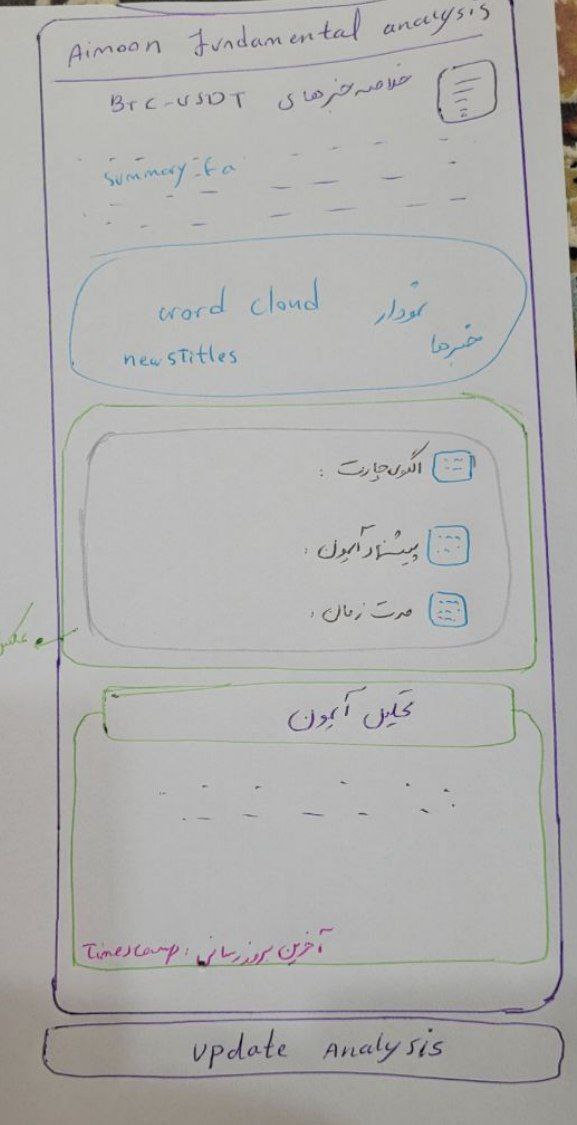 Aimoon Fundamental analysis
خلاصه خبرهای BTC-USDT
summary-fa
word cloud نمودار خبرها
newsTitles
الگوی چارت :
پیشنهاد آیمون :
مدت زمان :
عکس
تحلیل آیمون
آخرین بروزرسانی : Timestamp
Update Analysis